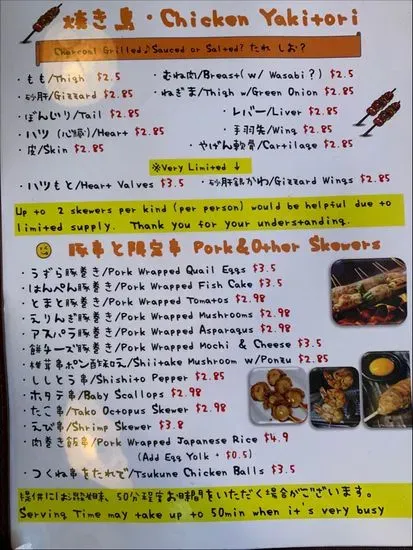 焼き鳥・Chicken Yakitori
Charcoal Grilled♪Sauced or Salted? たれ しお?
・もも/Thigh $2.5
・むね肉/Breast(w/ Wasabi?) $2.5
・砂肝/Gizzard $2.85
・ねぎま/Thigh w/Green Onion $2.85
・ぼんじり/Tail $2.85
・レバー/Liver $2.85
・ハツ (心臓)/Heart $2.85
・手羽先/Wing $2.85
・皮/Skin $2.85
・やげん軟骨/Cartilage $2.85
※Very Limited ↓
・ハツもと/Heart Valves $3.5
・砂肝銀かわ/Gizzard Wings $2.85
Up to 2 skewers per kind (per person) would be helpful due to
limited supply. Thank you for your understanding.
豚串と限定串 Pork&Other Skewers
・うずら豚巻き/Pork Wrapped Quail Eggs $3.5
・はんぺん豚巻き/Pork Wrapped Fish Cake $3.5
・とまと豚巻き/Pork Wrapped Tomatos $2.98
・えりんぎ豚巻き/Pork Wrapped Mushrooms $2.98
・アスパラ豚巻き/Pork Wrapped Asparagus $2.98
・餅チーズ豚巻き/Pork Wrapped Mochi & Cheese $3.5
・椎茸串ポン酢和え/Shiitake Mushroom w/Ponzu $2.85
・ししとう串/Shishito Pepper $2.85
・ホタテ串/Baby Scallops $2.98
・たこ串/Tako Octopus Skewer $2.98
・えび串/Shrimp Skewer $3.8
・肉巻き飯串/Pork Wrapped Japanese Rice $4.9
(Add Egg Yolk + $0.5)
・つくね串をたれで/Tsukune Chicken Balls $3.5
提供にはお時間、50分程度お時間をいただく場合がございます。
Serving Time may take up to 50min when it's very busy